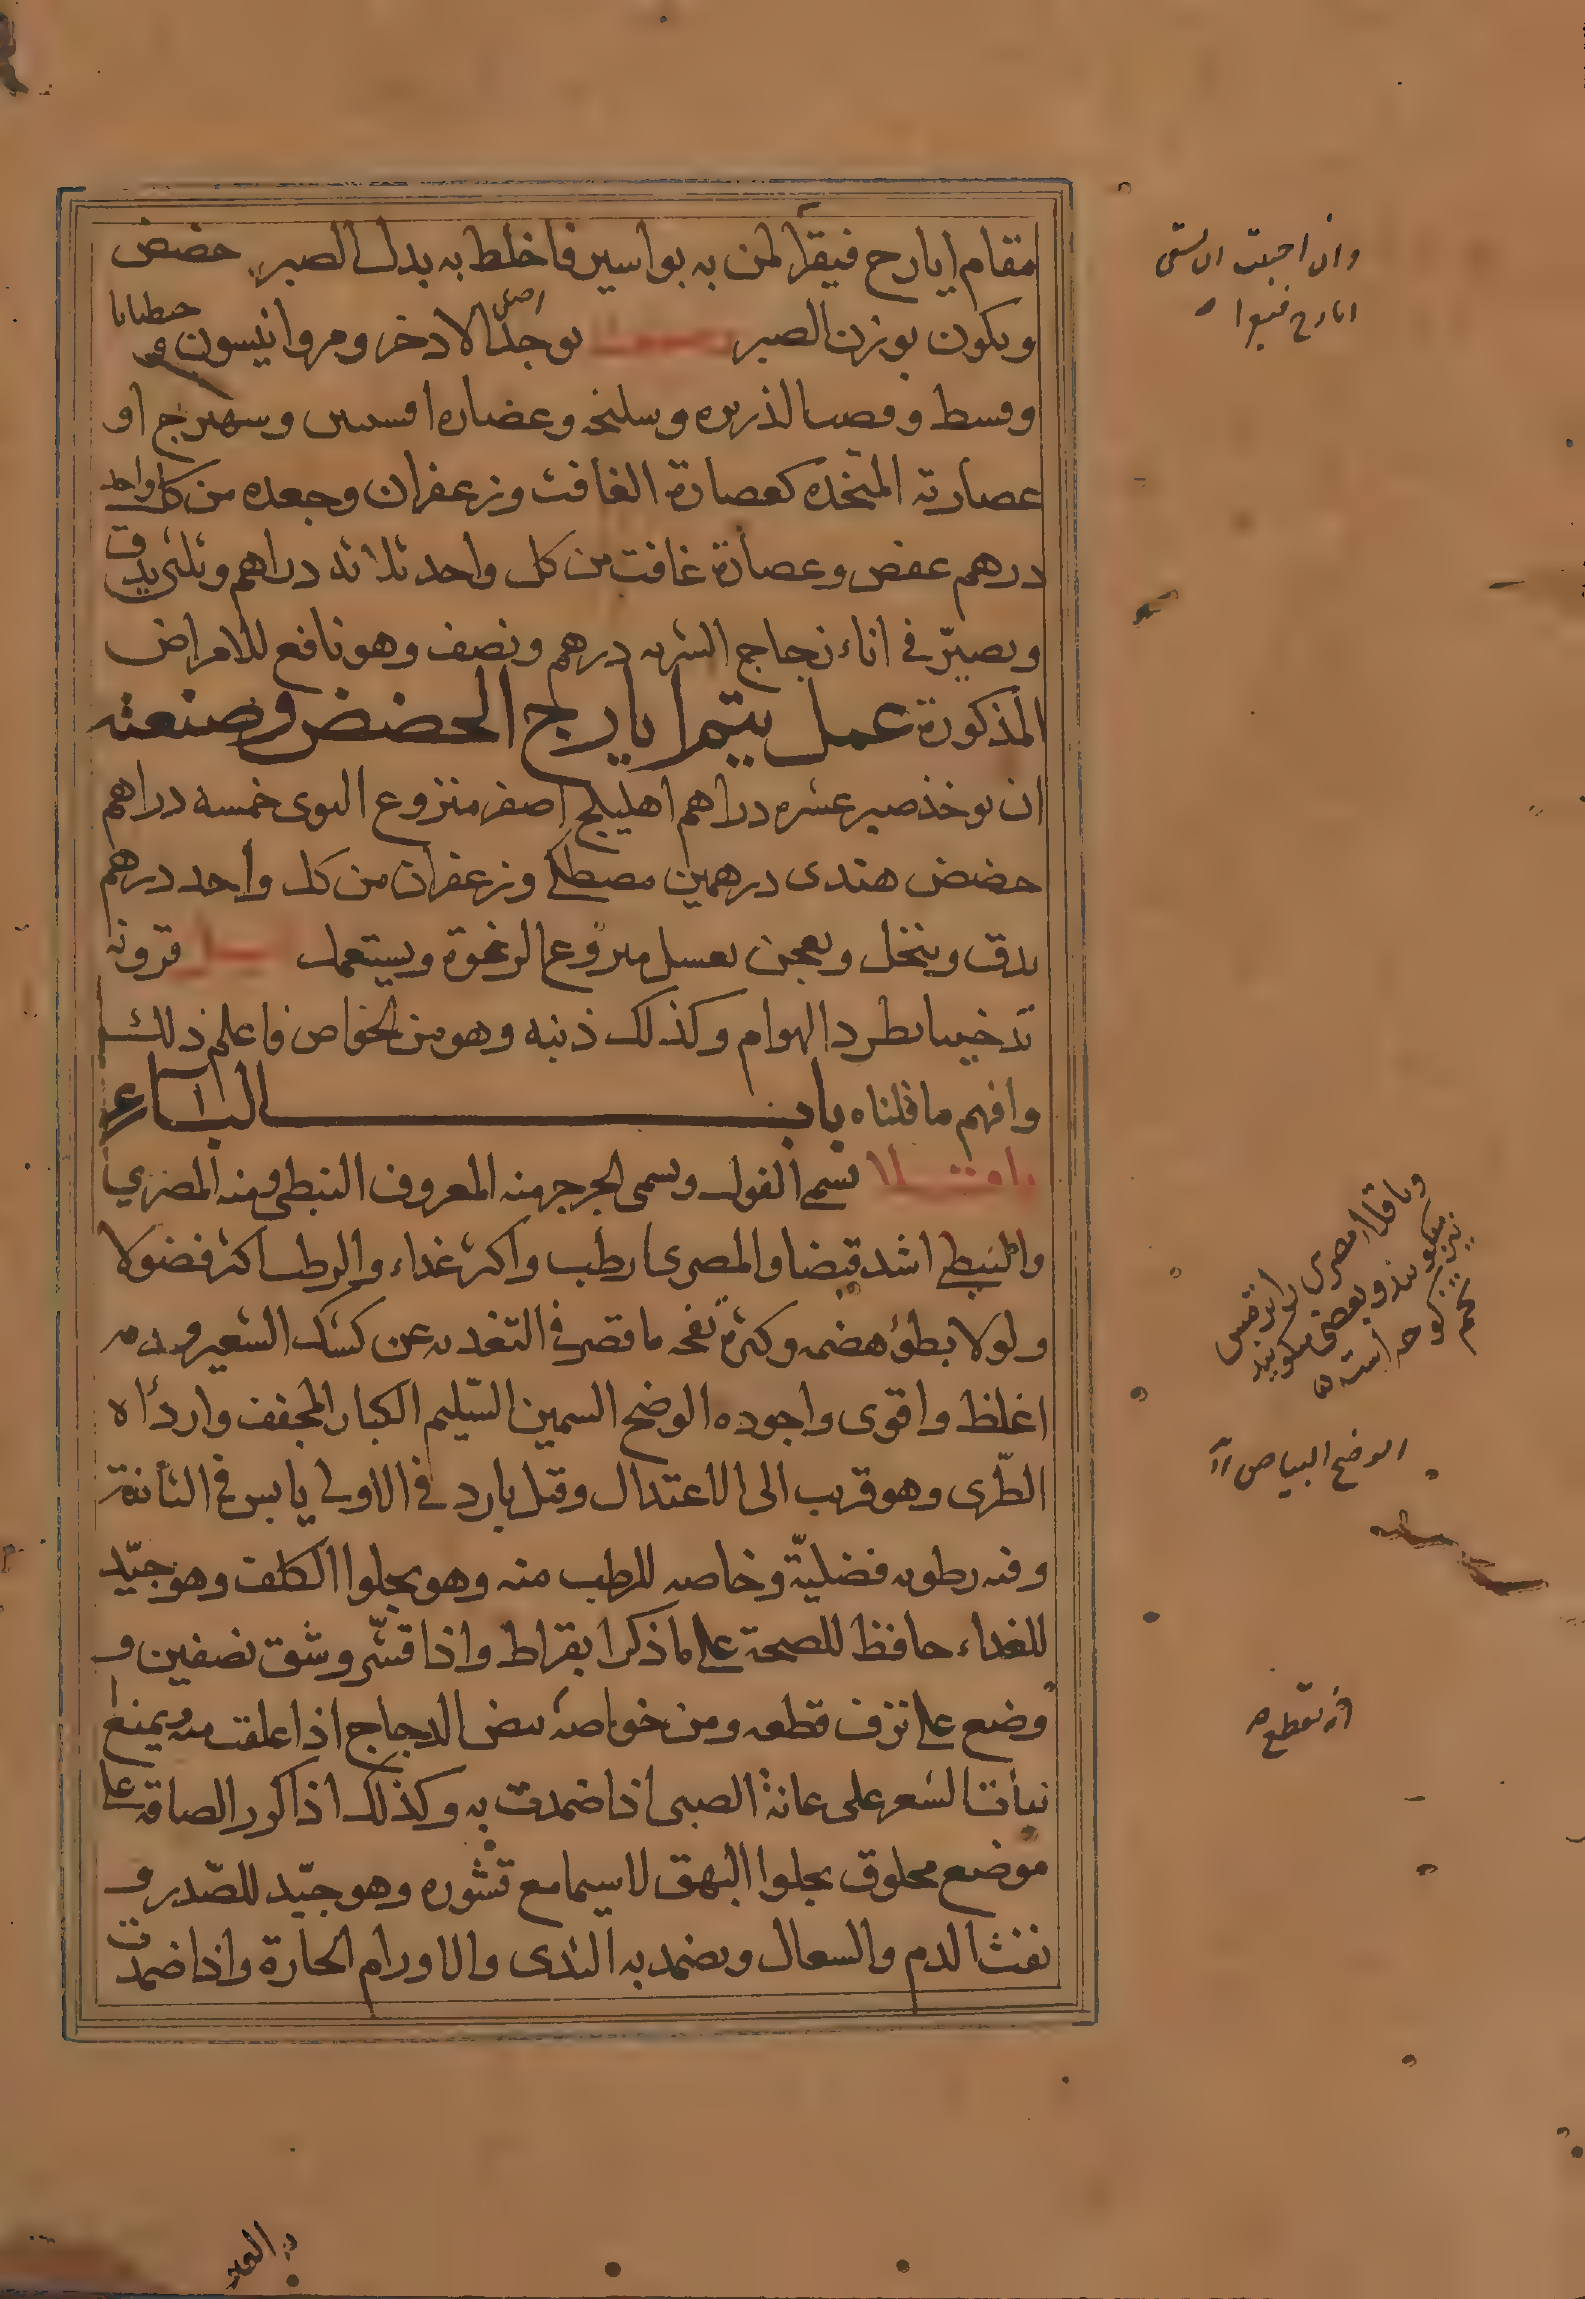 مقام ايارح فيقرا لمن به بواسير فاخلط به بدل الصبر حضض
ويكون بوزن الصبر يوخذ اصل الاذخر ومر وانيسون و
وقسط وقصب الذريره وسليخه وعصاره افسنتين وسهترج او
عصارته المتخذه كعصارة الغافت وزعفران وجعده من كل واحد
درهم عفص وعصارة غافت من كل واحد ثلاثه دراهم وثلثى يدق
ويصيّر فى اناء زجاج الشربه درهم ونصف وهو نافع للامراض
المذكورة عمل يتم ايارج الحضض وصنعته
ان يوخذ صبر عشره دراهم اهليلج اصفر منزوع النوى خمسه دراهم
حضض هندى درهمين مصطكى وزعفران من كل واحد درهم
يدق وينخل ويعجن بعسل منزوع الرغوة ويستعمل قرونه
تدخينا يطرد الهوام وكذلك ذنبه وهو من الخواص فاعلم ذلك
وافهم ما قلناه باب الباء
باقلا يسمى الفول ويسمى الجرجر منه المعروف النبطى ومنه المصري
والنبطى اشد قبضا والمصرى ارطب واكثر غداء والرطب اكثر فضولا
ولولا بطؤ هضمه وكثرة نفخه ما قصر فى التغذيه عن كشك الشعير ودمه
اغلظ واقوى واجوده الوضح السمين السّليم الكبار المجفف واردأه
الطّرى وهو قريب الى الاعتدال وقيل بارد فى الاولى يابس فى الثانية
وفيه رطوبه فضليّة وخاصه للرطب منه وهو يجلوا الكلف وهو جيّد
للغداء حافظ للصحة على ما ذكر ابقراط واذا قشّر وشق نصفين و
وضع على نزف قطعه ومن خواصه بيض الدجاج اذا علفت منه ويمنع
نبات الشعر على عانة الصبى اذا ضمدت به وكذلك اذا كرر الصاقه على
موضع محلوق يجلوا البهق لا سيما مع قشوره وهو جيّد للصّدر و
نفث الدم والسعال ويضمد به الثدى والاورام الحارة واذا ضمدت
وان احببت ان يسقى
ايارح فيقرا
وباقلا مصرى را ترمس
نيز ميكويند وبعضى ميكويند
الوضح البياض